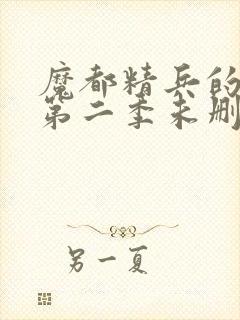 魔都精兵的
第二季未删
另一夏